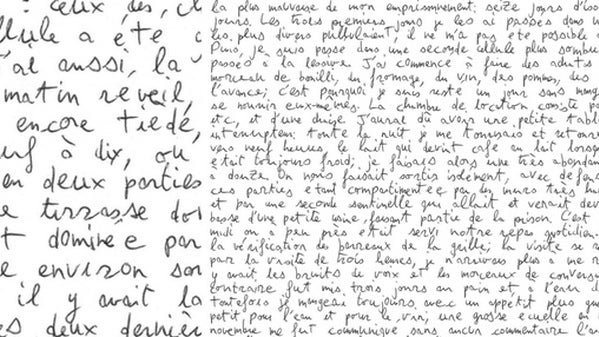 : ceux des, il
llule a été
j'ai aussi, la
matin réveil,
encore tiède,
uf à dix, ou
en deux parties
e terrasse do
t dominée par
e environ son
il y avait la
es deux derniè
la plus mauvaise de mon emprisonnement: seize jours d'
jours. Les trois premiers jours je les ai passés dans
les plus divers pullulaient, il ne m'a pas été possible
Puis, je suis passé dans une seconde cellule plus sombre
passés à la lessive. J'ai commencé à faire des achats
morceau de bouilli, du fromage, du vin, des pommes, des
l'avance; c'est pourquoi je suis resté un jour sans mange
se nourrir eux-mêmes. La chambre de location, consiste
etc., et d'une chaise J'aurai dû avoir une petite tabl
interruption: toute la nuit je me tournais et retourn
vers neuf heures, le lait qui devint café au lait lorsq
était toujours froid; je faisais alors une très abondan
à douze On nous faisait sortir isolément, avec défens
ces parties étant compartimentée par des murs très hau
et par une seconde sentinelle qui allait et venait dev
basse d'une petite usine faisant partie de la prison. C'est
midi on à peu près était servi notre repas quotidien.
la vérification des barreaux de la grille; la visite se
par la visite de trois heures, je n'arrivais plus à me
y avait les bruits de voix et les morceaux de conversa
contraire fut mis trois jours au pain et à l'eau
toutefois je mangeai toujours avec un appétit plus que
petit, pour l'eau et pour le vin; une grosse écuelle en
novembre me fut communiqué sans aucun commentaire l'